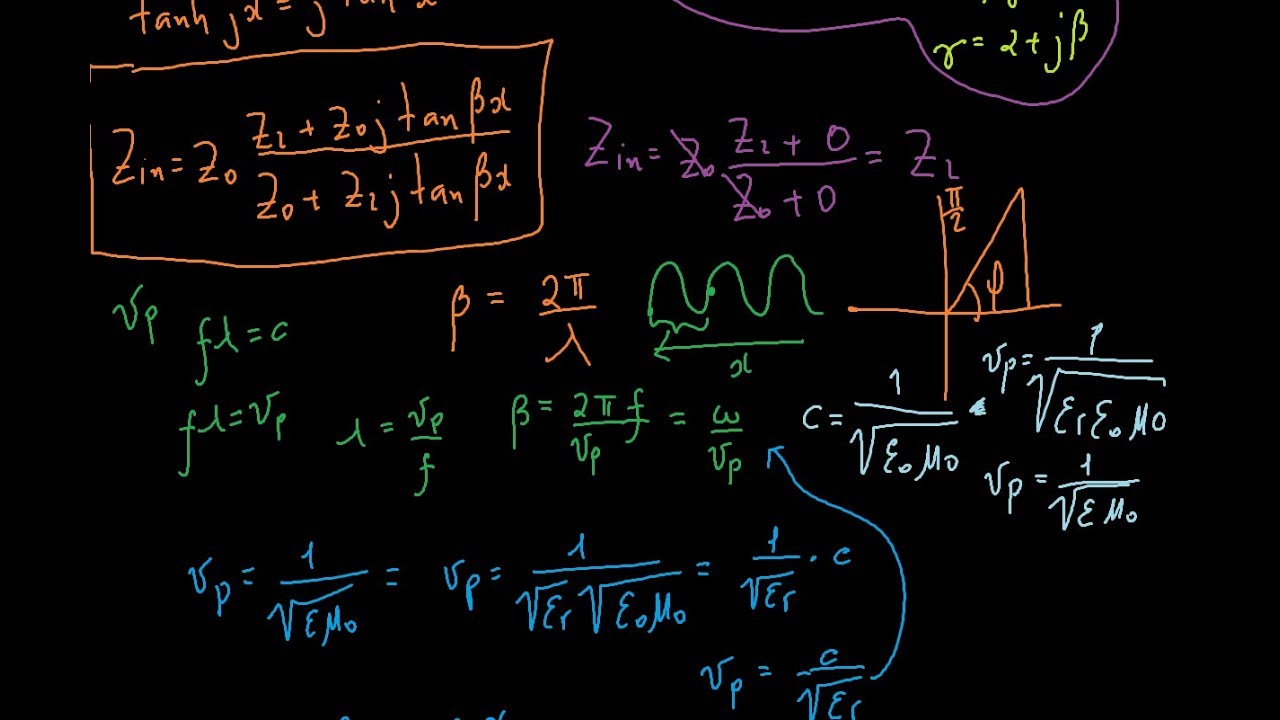 tanh jx = j tan x
γ = α + jβ
Zin = Z0 (ZL + Z0 j tan βx) / (Z0 + ZL j tan βx)
Zin = Z0 (ZL + 0) / (Z0 + 0) = ZL
π/2
φ
vp
fλ = c
β = 2π / λ
x
fλ = vp
λ = vp / f
β = 2πf / vp = ω / vp
c = 1 / √(ε0 μ0)
vp = 1 / √(εr ε0 μ0)
vp = 1 / √(ε μ0)
vp = 1 / √(ε μ0) = vp = 1 / (√εr √(ε0 μ0)) = 1 / √εr · c
vp = c / √εr